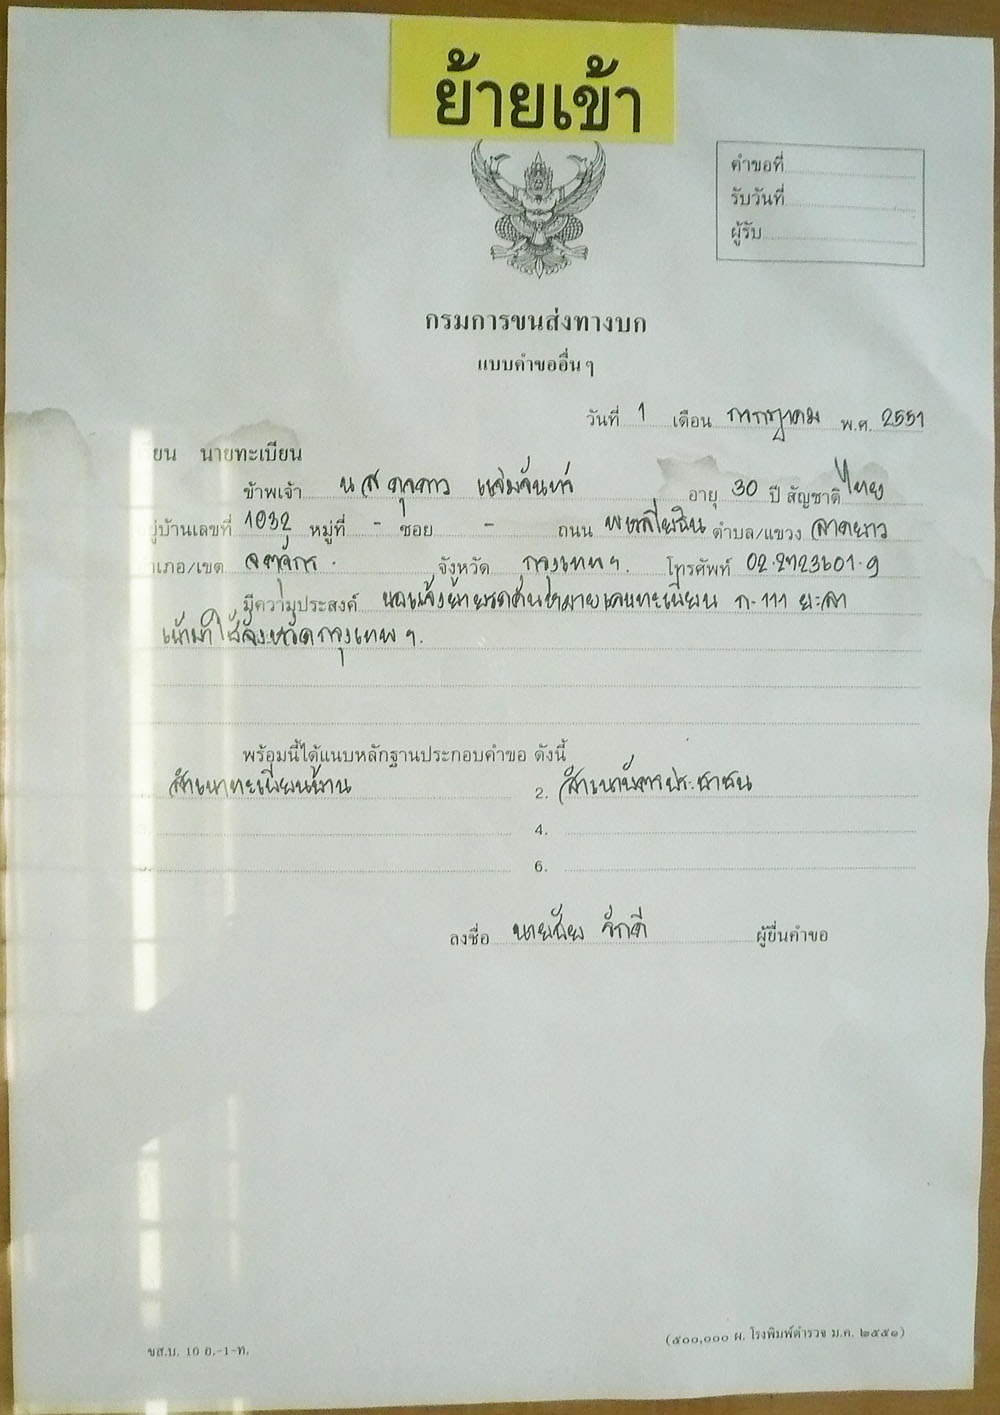 ย้ายเข้า
คำขอที่
รับวันที่
ผู้รับ
กรมการขนส่งทางบก
แบบคำขออื่น ๆ
วันที่ 1 เดือน กรกฎาคม พ.ศ. 2551
เรียน นายทะเบียน
ข้าพเจ้า น.ส ดุจดาว แจ่มจันทร์ อายุ 30 ปี สัญชาติ ไทย
อยู่บ้านเลขที่ 1032 หมู่ที่ - ซอย - ถนน พหลโยธิน ตำบล/แขวง ลาดยาว
อำเภอ/เขต จตุจักร จังหวัด กรุงเทพฯ. โทรศัพท์ 02-2723601-9
มีความประสงค์ ขอแจ้งย้ายรถคันหมายเลขทะเบียน ก-111 ยะลา
เข้ามาใช้จังหวัดกรุงเทพฯ.
พร้อมนี้ได้แนบหลักฐานประกอบคำขอ ดังนี้
สำเนาทะเบียนบ้าน 2. สำเนาบัตรประชาชน
4.
6.
ลงชื่อ นายชัย จักดี ผู้ยื่นคำขอ
ขส.บ. 10 อ.-1-ท.
(๕๐๐,๐๐๐ ผ. โรงพิมพ์ตำรวจ ม.ค. ๒๕๕๑)